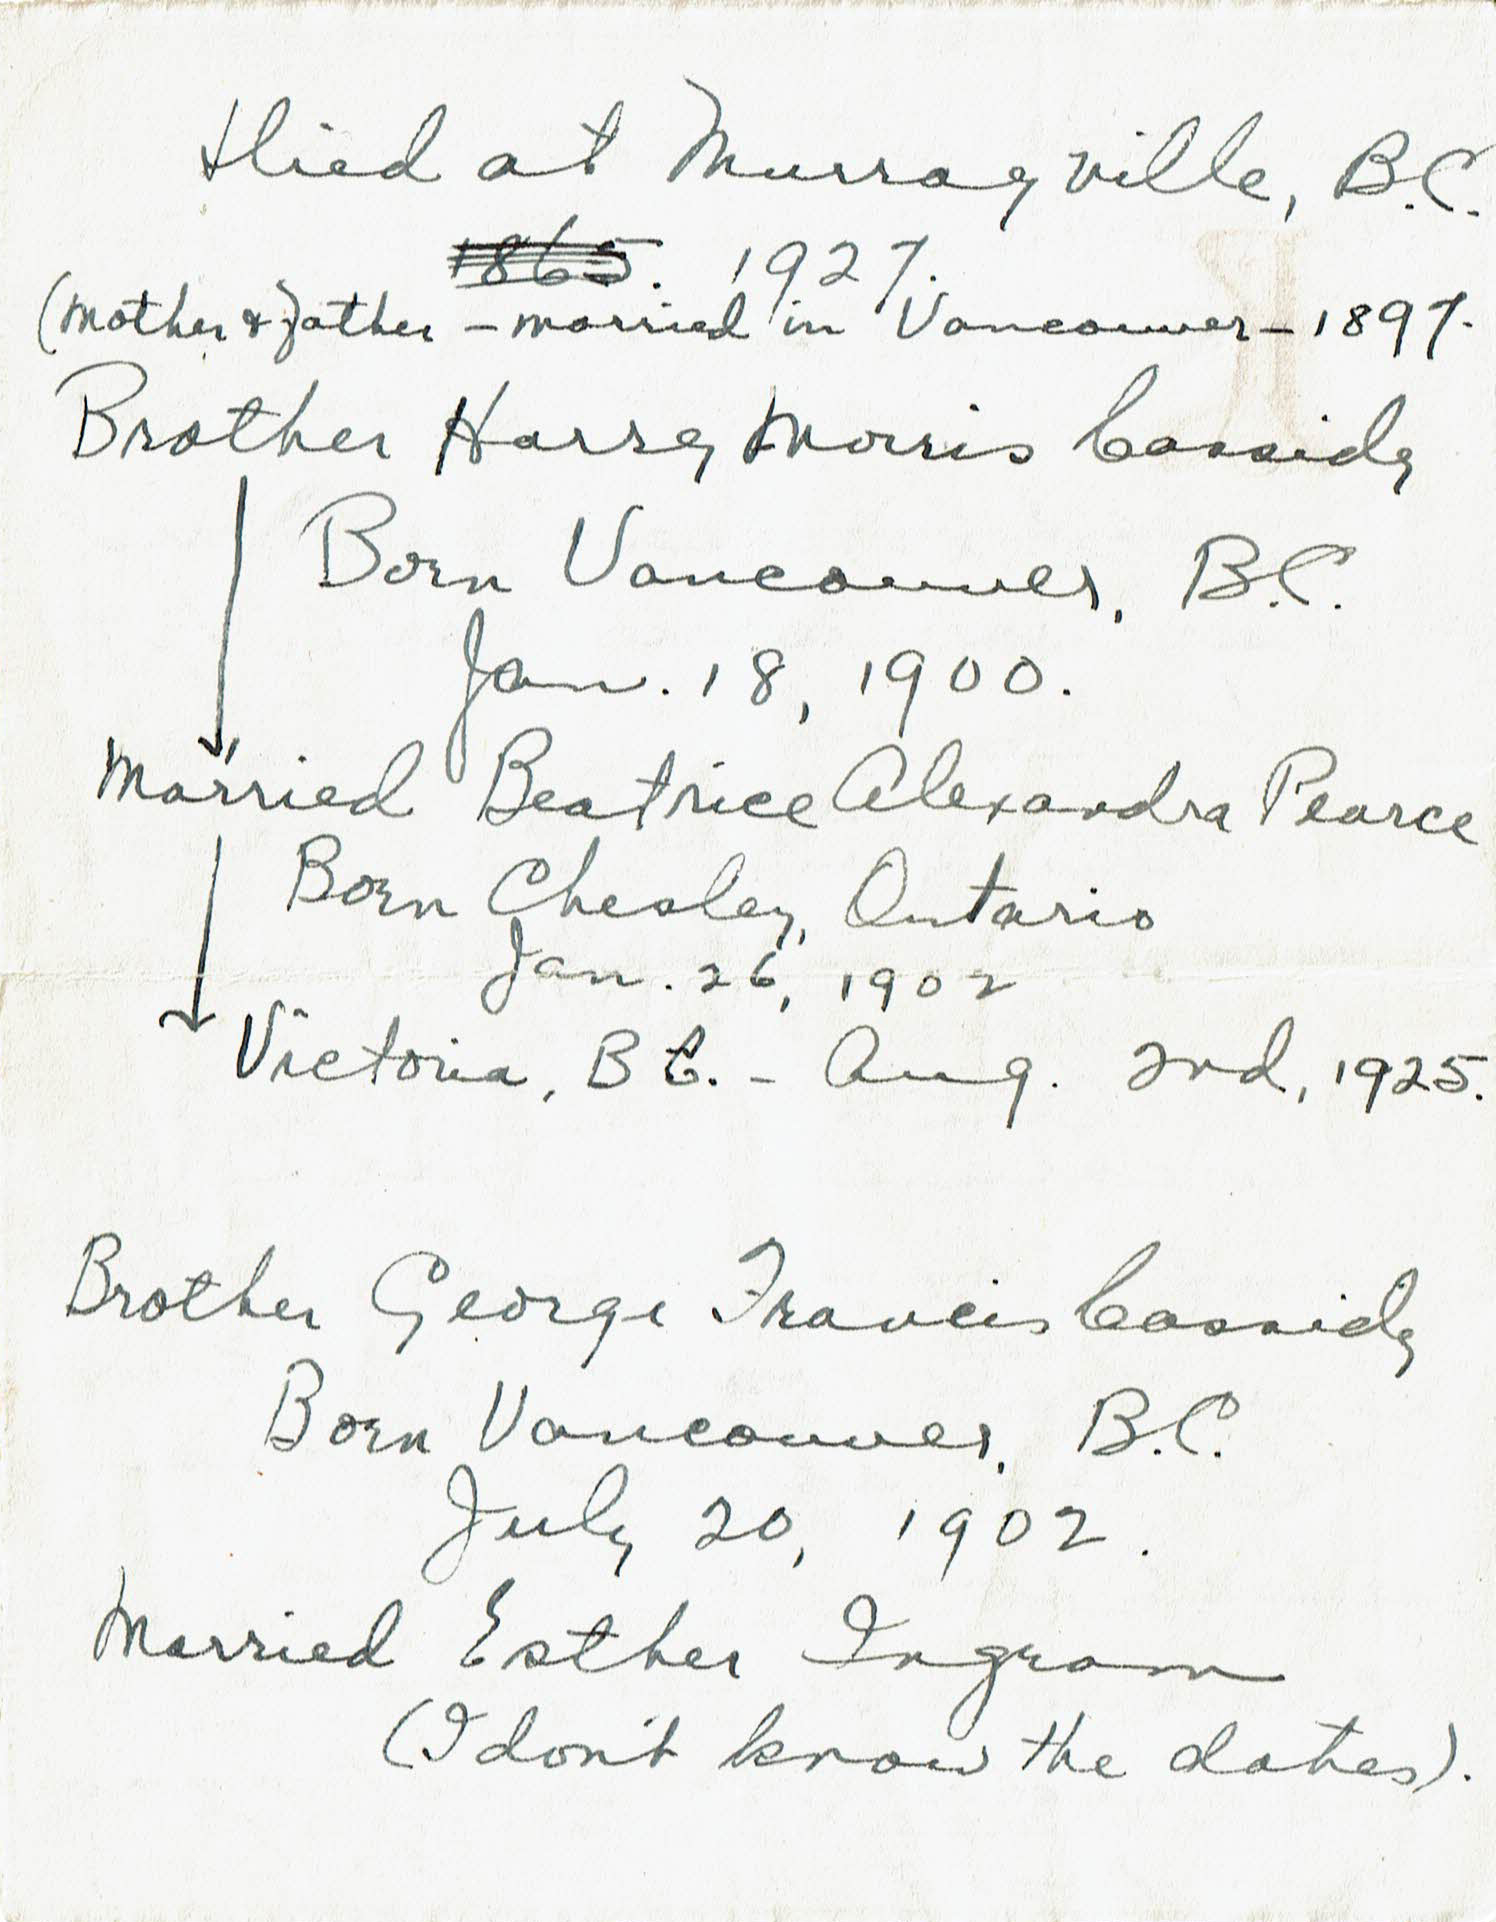 died at Murrayville, B.C.
1865. 1927.
(Mother & Father - married in Vancouver - 1897.
Brother Harry Morris Cassidy
Born Vancouver, B.C.
Jan. 18, 1900.
Married Beatrice Alexandra Pearce
Born Chesley, Ontario
Jan. 26, 1902
Victoria, B.C. - Aug. 2nd, 1925.
Brother George Francis Cassidy
Born Vancouver, B.C.
July 20, 1902.
Married Esther Ingram
(I don't know the dates).